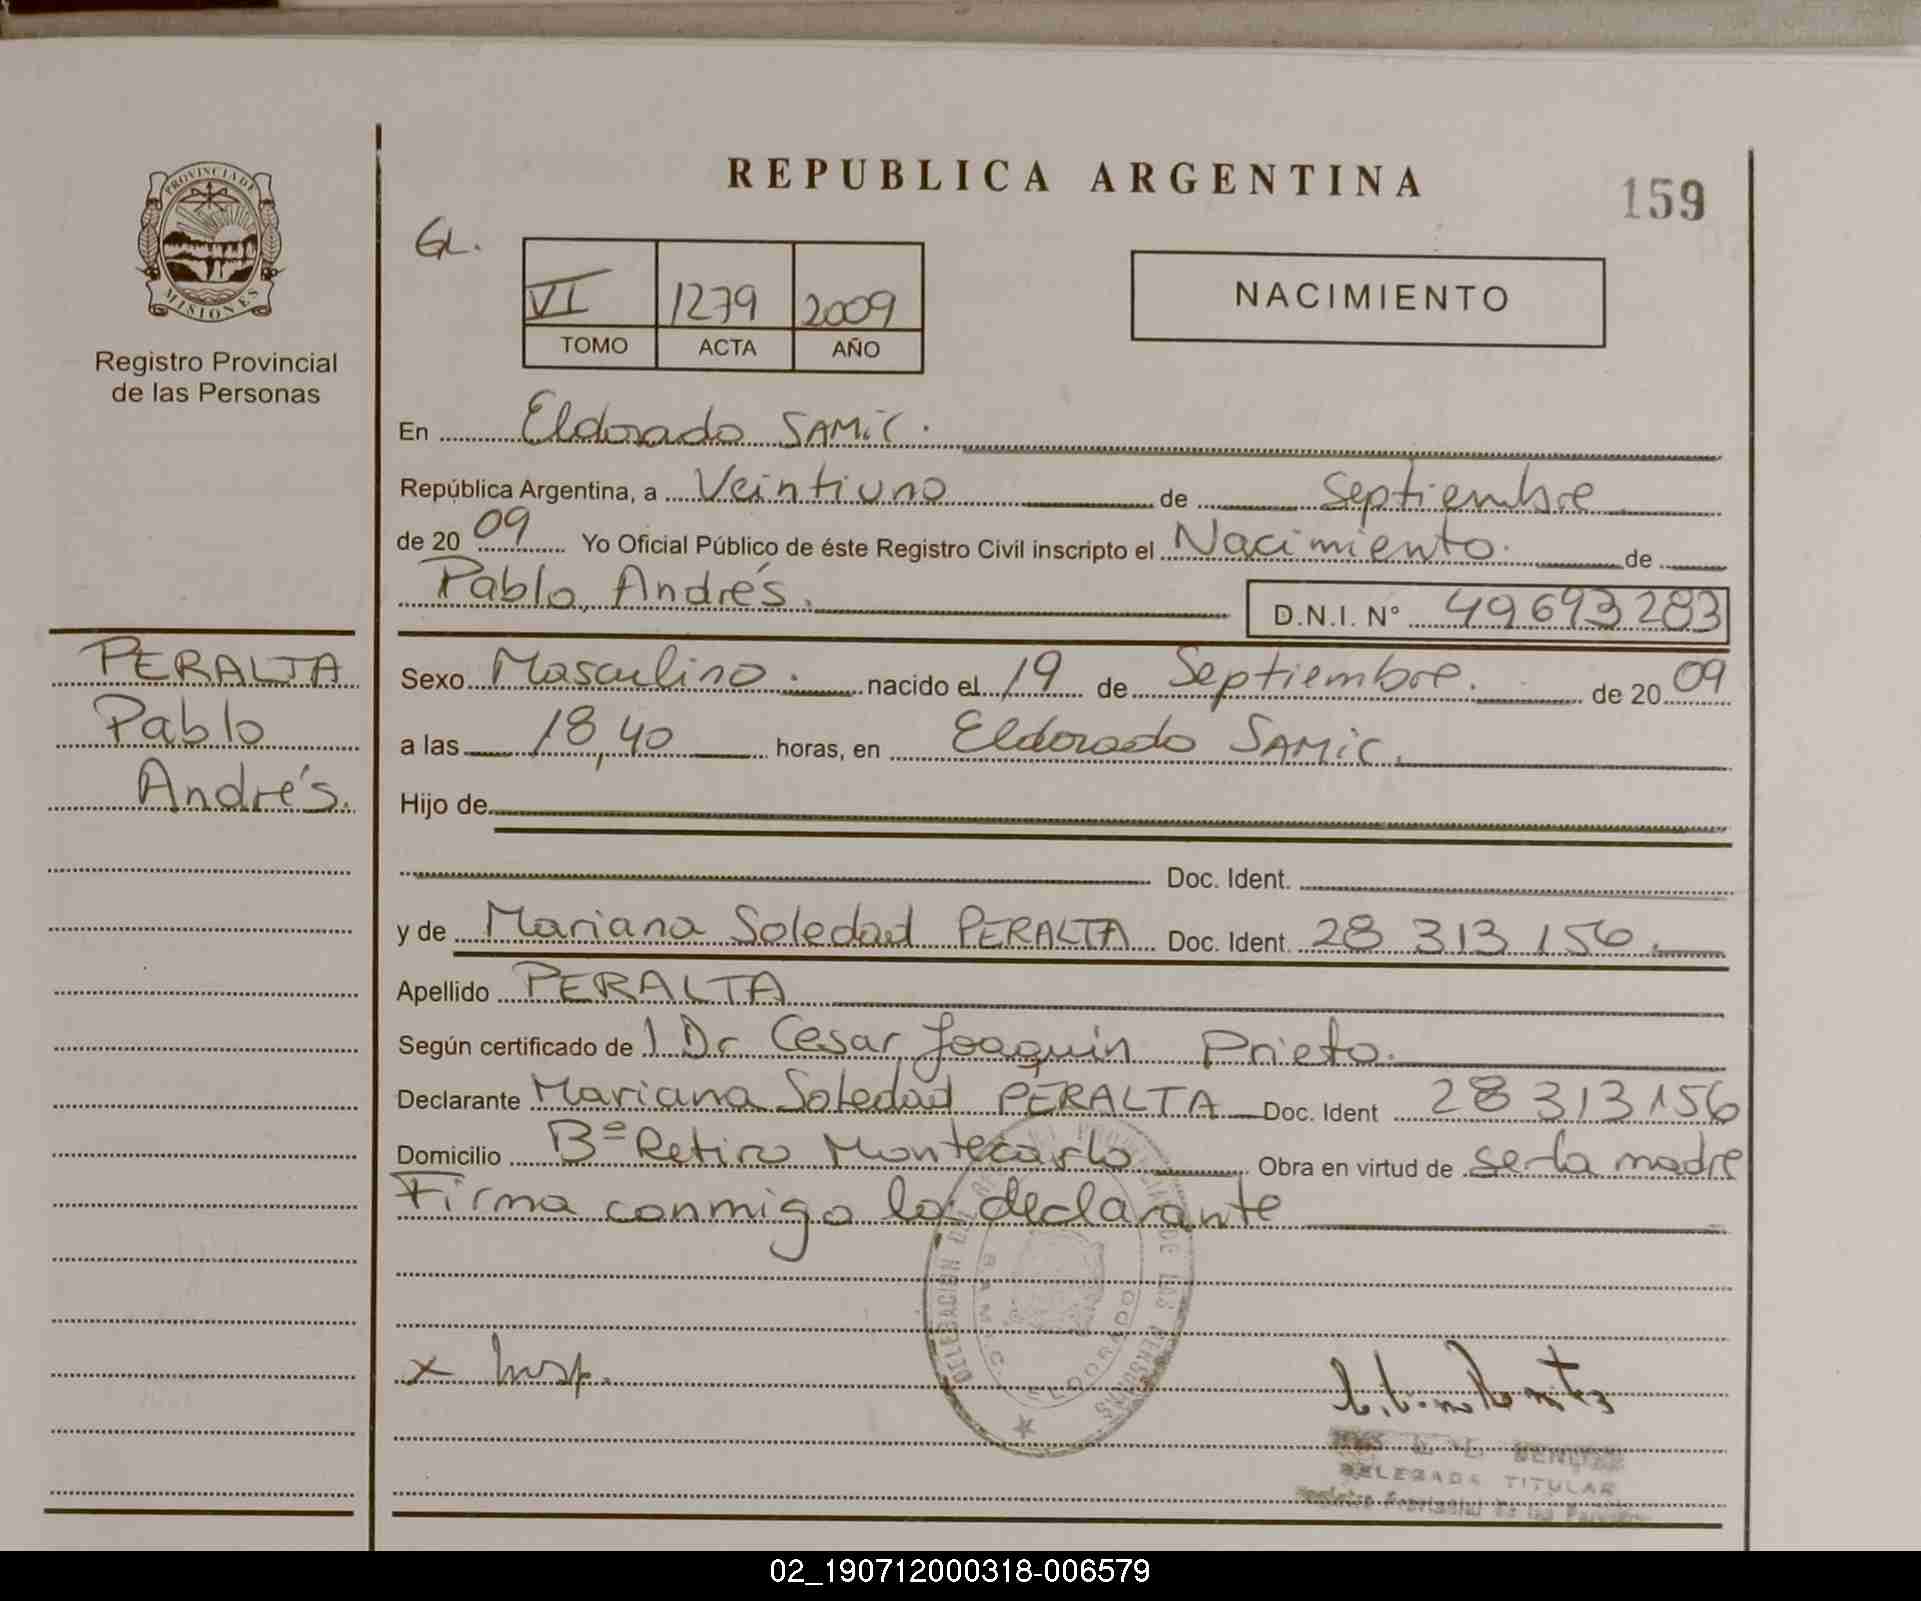 REPUBLICA ARGENTINA
159
PROVINCIA DE
MISIONES
Registro Provincial
de las Personas
GL.
VI 1279 2009
TOMO ACTA AÑO
NACIMIENTO
En Eldorado SAMIC.
República Argentina, a Veintiuno de Septiembre
de 20 09 Yo Oficial Público de éste Registro Civil inscripto el Nacimiento. de
Pablo, Andrés. D.N.I. N° 49693283
PERALTA
Pablo
Andrés.
Sexo Masculino. nacido el 19 de Septiembre. de 20 09
a las 18,40 horas, en Eldorado SAMIC.
Hijo de
Doc. Ident.
y de Mariana Soledad PERALTA Doc. Ident. 28 313 156.
Apellido PERALTA
Según certificado de 1 Dr Cesar Joaquin Prieto.
Declarante Mariana Soledad PERALTA Doc. Ident 28 313 156
Domicilio Bº Retiro Montecarlo Obra en virtud de ser la madre
Firma conmigo la declarante
DELEGACION DEL REGISTRO PROVINCIAL DE LAS PERSONAS
S.A.M.I.C. ELDORADO
x
DELEGADA TITULAR
Registro Provincial de las Personas
02_190712000318-006579